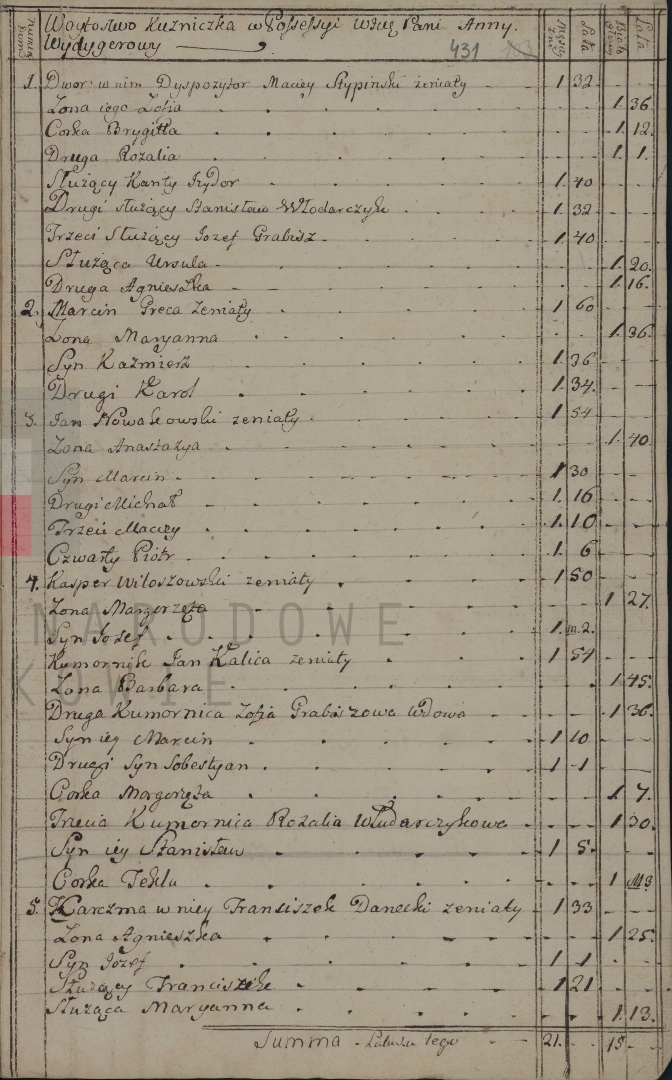 Woytostwo Kuzniczka w Possessyi Pani Anny.
Wydygerowy
431
Męszczyzni
Lata
Lata
1. Dwor w nim Dyspozytor Maciey Stypiński żeniaty 1. 32.
Zona iego Zofia 1. 36.
Corka Brygitta 1. 12.
Druga Rozalia 1. 1.
Służący Kanty Izydor 1. 40
Drugi służący Stanisław Włodarczyk 1. 32
Trzeci Służący Iozef Grabisz 1. 40
Służąca Ursula 1. 20.
Druga Agnieszka 1. 16.
2. Marcin Greca żeniaty 1 60
Zona Maryanna 1. 36.
Syn Kaźmierz 1. 36
Drugi Karol 1. 34.
3. Jan Nowakowski zeniały 1 54
Zona Anastazya 1. 40.
Syn Marcin 1 30
Drugi Michał 1. 16
Trzeci Maciey 1. 10
Czwarty Piotr 1. 6
4. Kasper Wiloszowski zeniaty 1 50
Zona Margorzęta 1 27.
Syn Iozef 1. m. 2.
Kumornik Jan Kalica żeniaty 1 54
Zona Barbara 1 45.
Druga Kumornica Zofia Grabiszowa Wdowa 1 36.
Syn iey Marcin 1 10
Drugi Syn Sobestyan 1 1
Corka Morgorzęta 1. 7.
Trzecia Kumornica Rozalia Włudarczykowa 1 30.
Syn iey Stanisław 1 5.
Corka Tekla 1 M3
5. Karczma w niey Franciszek Danecki zeniaty 1 33
Zona Agnieszka 1 25.
Syn Józef 1 1
Służący Franciszek 1 21
Służąca Maryanna 1. 13.
Summa tego 21. 15
NARODOWE
KOWIE